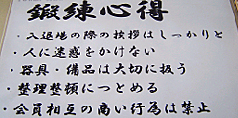 鍛練心得
・入退場の際の挨拶はしっかりと
・人に迷惑をかけない
・器具・備品は大切に扱う
・整理整頓につとめる
・会員相互の商い行為は禁止